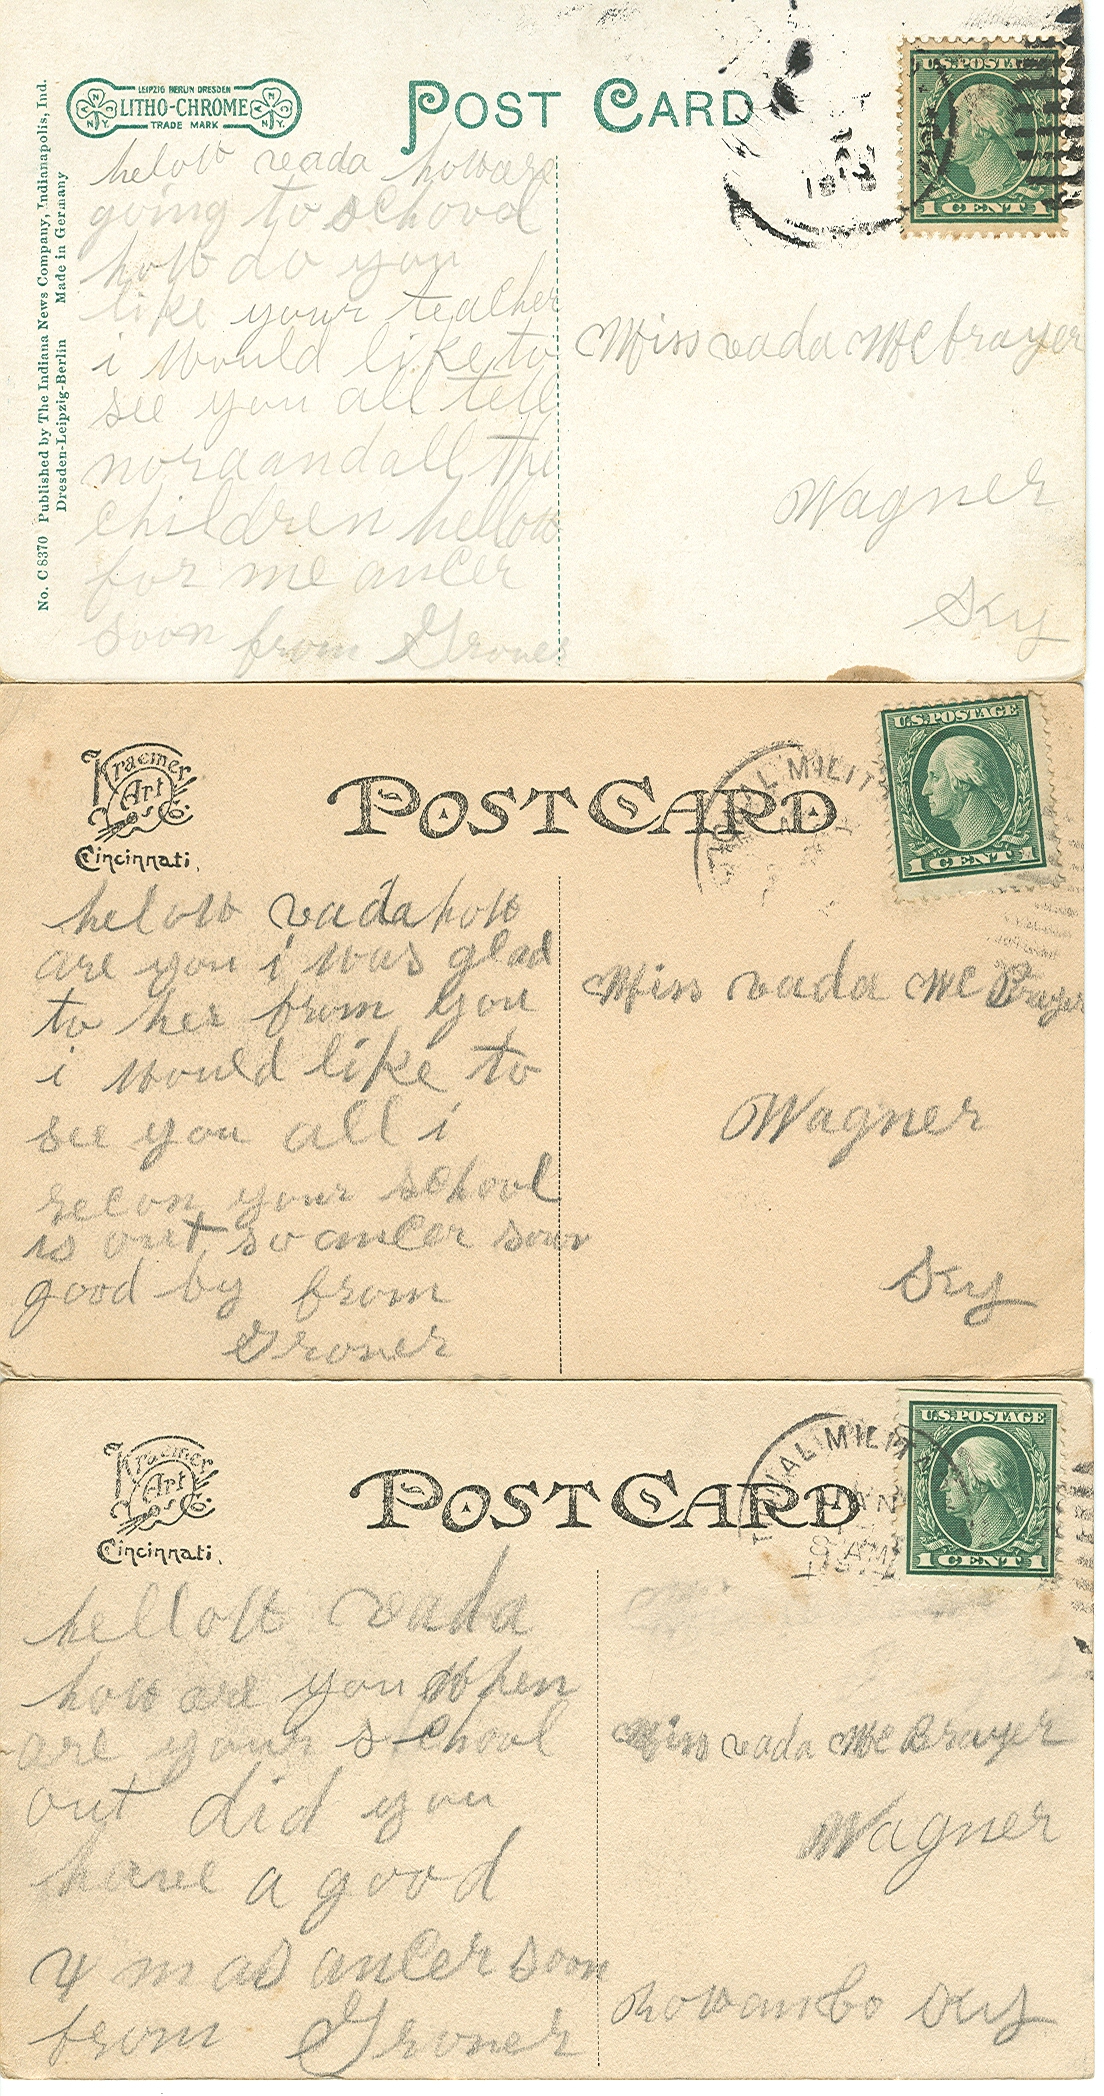 LEIPZIG BERLIN DRESDEN
LITHO-CHROME
TRADE MARK
N N.Y.
N.Y.
POST CARD
U.S. POSTAGE
1 CENT 1
No. C 8370 Published by The Indiana News Company, Indianapolis, Ind.
Dresden-Leipzig-Berlin Made in Germany
helow vada howare
going to school
how do you
like your teacher
i would like to
see you all tell
nora and all the
children hellow
for me ancer
soon from Grover
Miss vada Mc brayer
Wagner
Ky
Kraemer
Art
Co.
Cincinnati.
POST CARD
MILIT
U.S. POSTAGE
1 CENT 1
helow vada how
are you i was glad
to her from you
i would like to
see you all i
recon your school
is out so ancer soon
good by from
Grover
Miss vada Mc Brayer
Wagner
Ky
Kraemer
Art
Co.
Cincinnati.
POST CARD
MILIT
JAN
AM
U.S. POSTAGE
1 CENT 1
hellow vada
how are you when
are your school
out did you
have a good
x mas ancer soon
from Grover
Miss vada Mc Brayer
Wagner
Rowan Co Ky